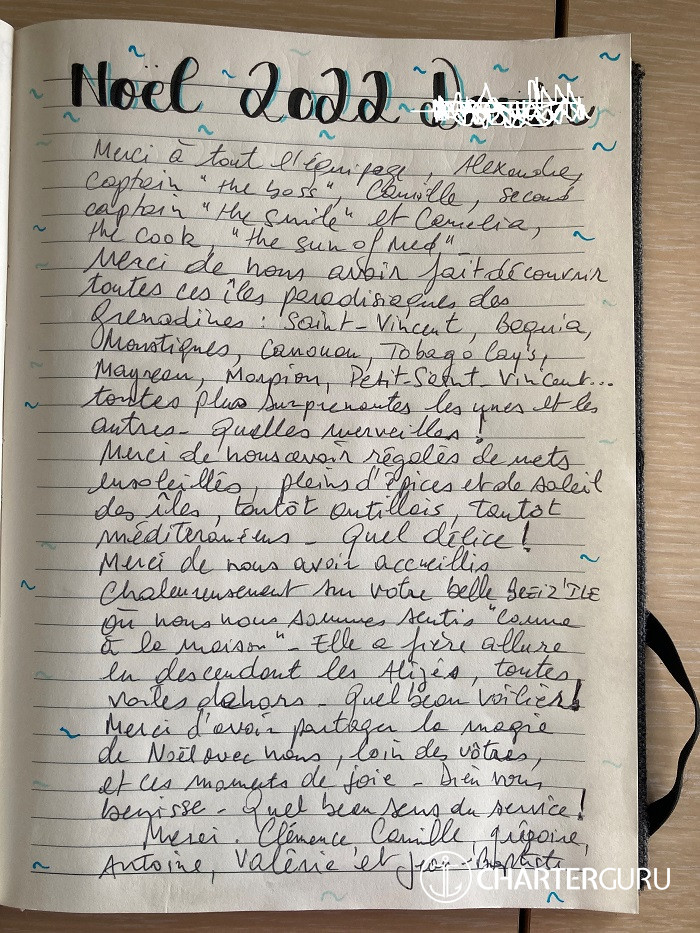 Noël 2022
Merci à tout l'équipage, Alexandre,
captain "the boss", Camille, second
captain "the smile" et Camelia,
the cook, "the sun of Med"
Merci de nous avoir fait découvrir
toutes ces îles paradisiaques des
Grenadines : Saint-Vincent, Bequia,
Moustiques, Canouan, Tobago Cay's,
Mayreau, Morpion, Petit-Saint-Vincent...
toutes plus surprenantes les unes et les
autres - Quelles merveilles !
Merci de nous avoir régalés de mets
ensoleillés, pleins d'épices et de soleil
des îles, tantôt antillais, tantôt
méditeranéens - Quel délice !
Merci de nous avoir accueillis
Chaleureusement sur votre belle BREIZ'ILE
où nous nous sommes sentis "comme
à la maison" - Elle a fière allure
en descendant les Alizés, toutes
voiles dehors - Quel beau voilier !
Merci d'avoir partager la magie
de Noël avec nous, loin des vôtres,
et ces moments de joie - Dieu vous
benisse - Quel beau sens du service !
Merci. Clémence Camille, Grégoire,
Antoine, Valérie et Jean-Baptiste
CHARTERGURU